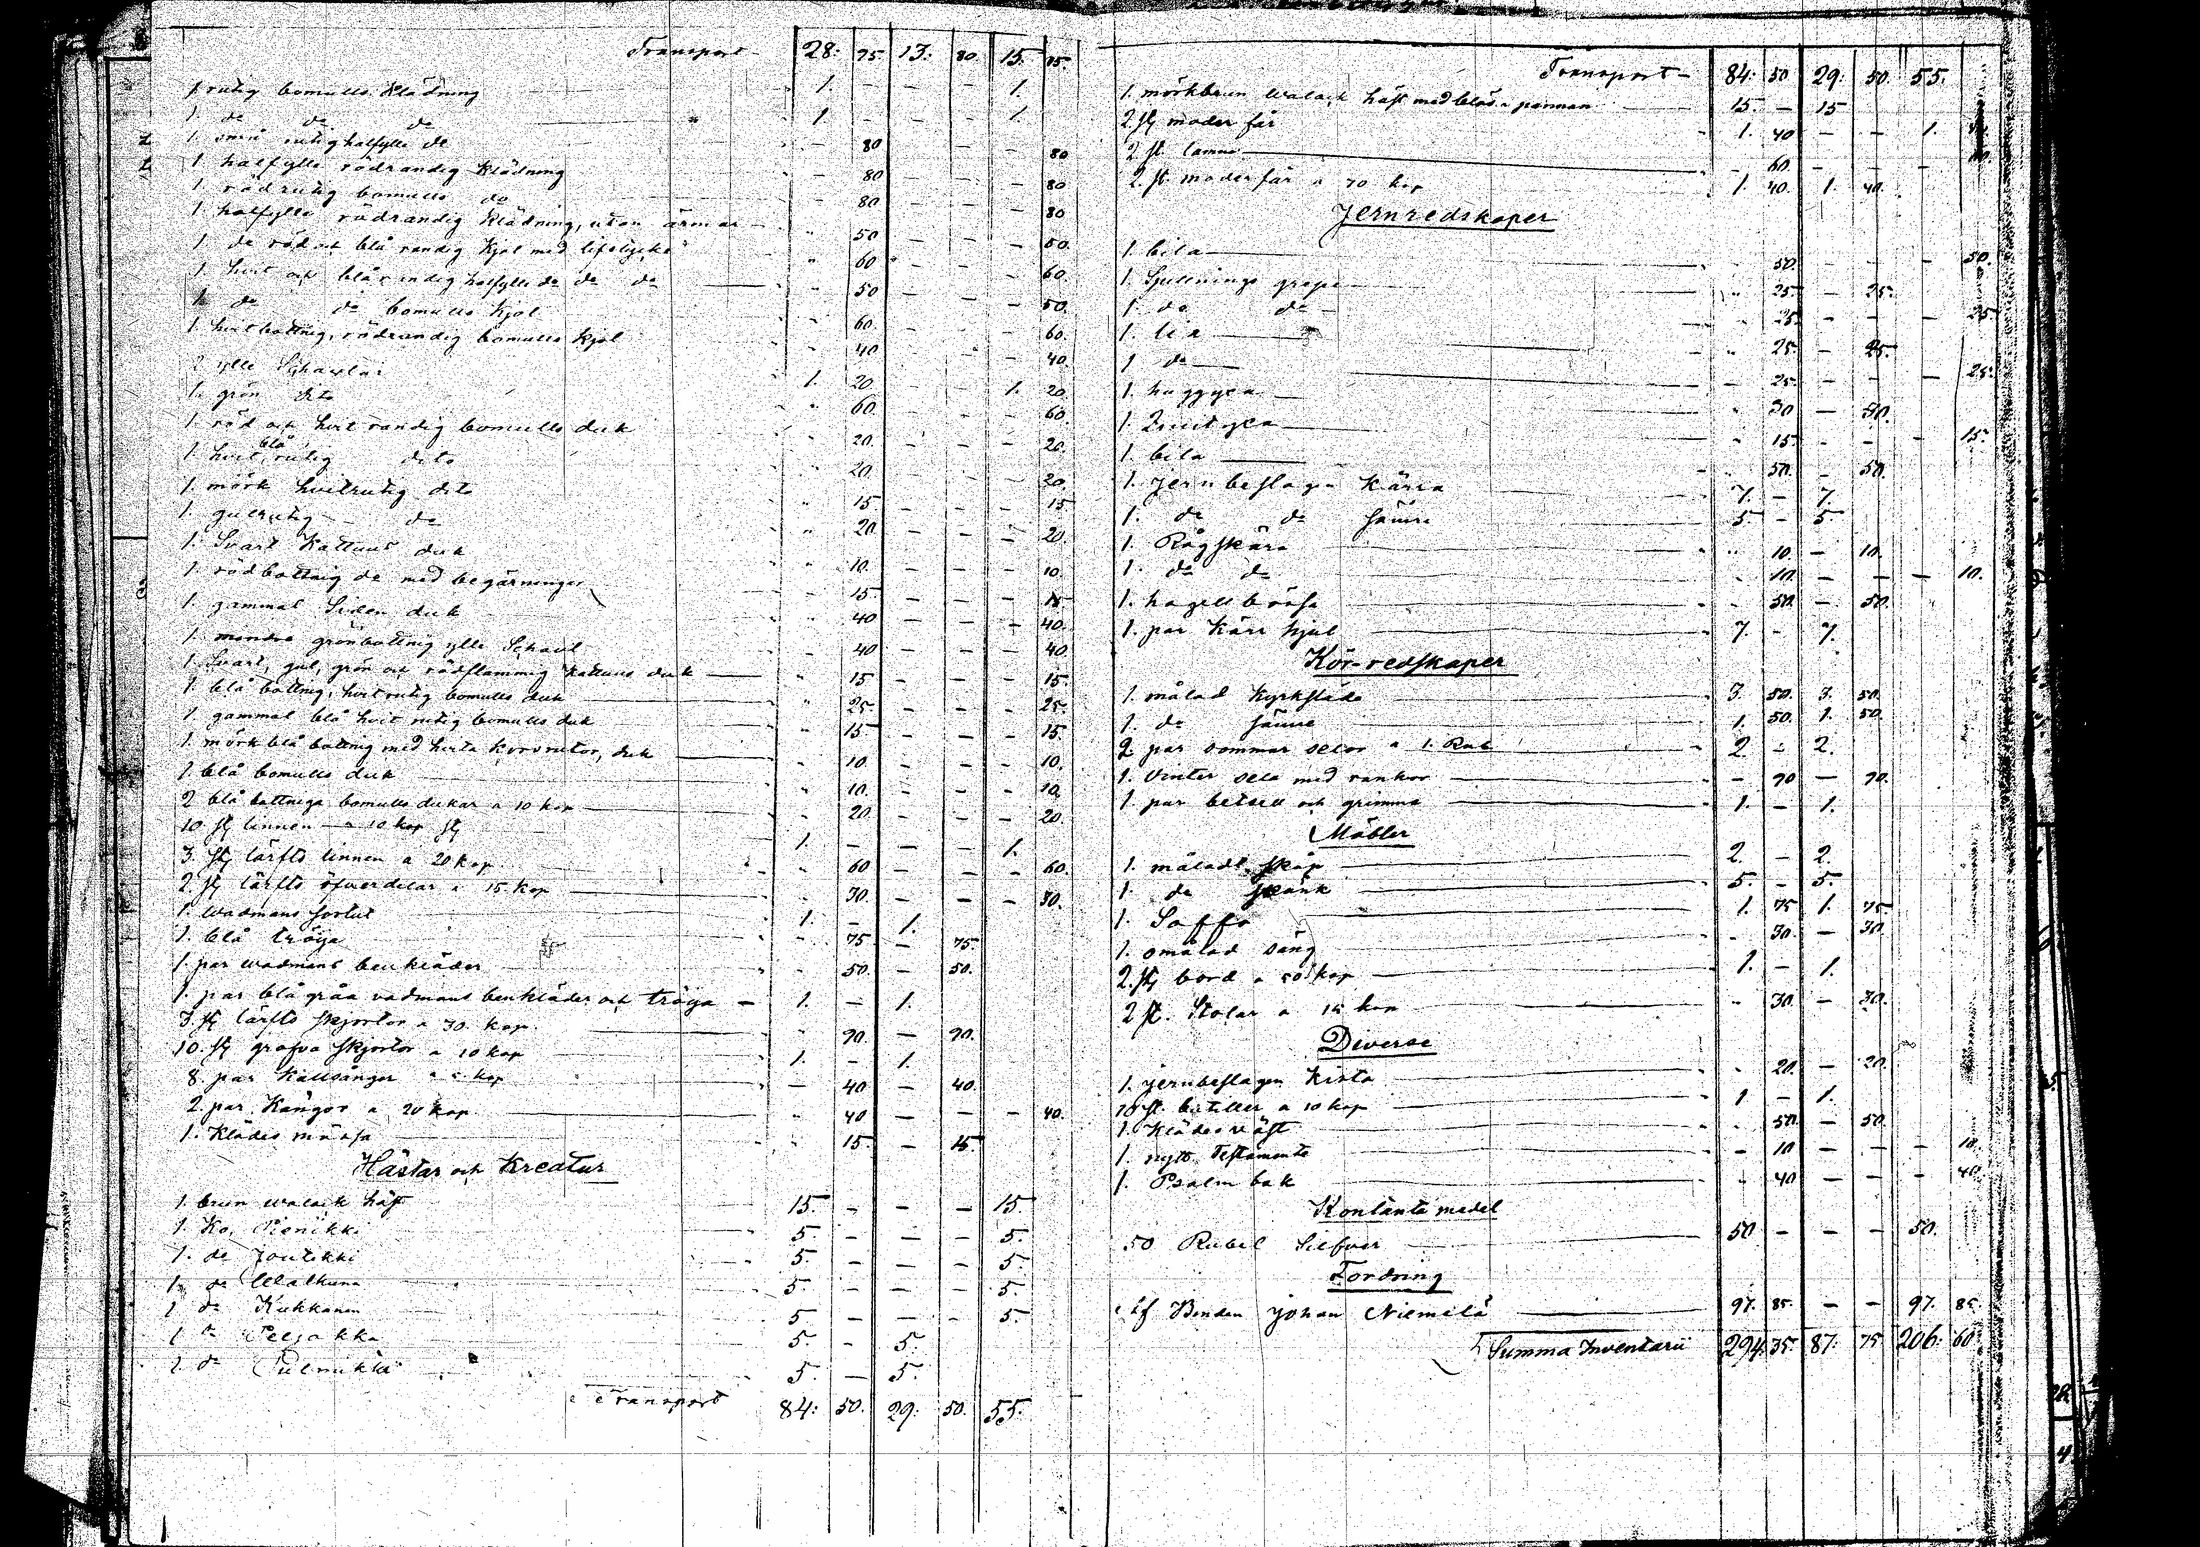 Transport 28: 75 13: 80 15. 15.
1 rutig bomulls Klädning 1. - - - 1.
1. do do do 1 - - - 1.
1 små rutig halfylle do - 80 - - - 80
1 halfylle rödrandig Klädning - 80 - - - 80
1 rödrutig bomulls do - 80 - - - 80
1 halfylle rödrandig Klädning, utan ärmar - 50 - - - 50.
1 do röd och blå randig Kjol med lifstycke 60 - - - 60.
1 hvit och blårandig halfylle do do do - 50 - - - 50.
1 do do bomulls Kjol - 60. - - - 60.
1. hvitbottnig, rödrandig bomulls Kjol - 40 - - - 40.
2 ylle Schavlar 1. 20 - - 1. 20.
1. grön dito 60. - - - 60.
1 röd och hvit randig bomulls duk 20. - - - 20.
1. hvit blå rutig dito 20 - - - 20.
1 mörk hvitrutig dito 15 - - - 15
1 gulrutig do 20 - - - 20.
1. Svart Kattuns duk 10. - - - 10.
1 rödbottnig do med begärningar 15 - - - 15
1. gammal Siden duk 40 - - - 40.
1 mindre grönbottnig ylle Schavl 40 - - - 40
1 Svart, gul, grön och rödflammig Kattuns duk 15 - - - 15.
1 blå bottnig, hvit rutig bomulls duk 25. - - - 25.
1 gammal blå hvit rutig bomulls duk 15 - - - 15.
1 mörk blå bottnig med hvita korsrutor, duk 10. - - - 10.
1 blå bomulls duk 10. - - - 10.
2 blå bottniga bomulls dukar a 10 kop 20. - - - 20.
10 st linnen a 10 kop st 1. - - - 1.
3. st lärfts linnen a 20 kop 60 - - - 60.
2. st lärfts öfverdelar a 15 kop 30. - - - 30.
1. wadmans 1. - 1.
1. blå tröja 75 - 75.
1. par wadmans benkläder 50. - 50.
1. par blågråa vadmans benkläder och tröja 1. - 1.
3. st lärfts skjortor a 30 kop. 90. - 90.
10. st grofva skjortor a 10 kop 1. - 1.
8 par Kallsånger a 5 kop 40 - 40.
2 par Kängor a 20 kop 40 - - - 40.
1. Klädes mössa 15. - 15.
Hästar och Kreatur
1. brun walack häst 15. - - - 15.
1 Ko, 5. - - - 5.
1. do Joutikki 5. - - - 5.
1 do 5. - - - 5.
1 do Kukkanen 5 - - - 5.
1 do 5. - 5.
1 do 5. - 5.
Transport 84: 50. 29: 50. 55.
Transport 84: 50 29: 50. 55.
1. mörkbrun walack häst med bläs i pannan 15. - 15
2 st moder får 1. 40 - - 1. 40.
2 st. lamm 60. - - - 60.
2. st. moder får a 70 kop 1. 40. 1. 40.
Jernredskaper
1. bila 50. - - - 50.
1. Spillnings grepe 25. - 25.
1. do do 25. - - - 25.
1. lia 25. - 25.
1 do 25. - - - 25.
1. huggyxa 30 - 30.
1. 15. - - - 15.
1. bila 50. - 50.
1. jernbeslagen Kärra 7. - 7.
1. do do 5. - 5.
1. Rågskära 10 - 10.
1. do do 10. - - - 10.
1. hagelbössa 50. - 50.
1. par Kärr hjul 7. - 7.
Kör-redskaper
1. målad Kyrksläda 3. 50. 3. 50.
1. do 1. 50. 1. 50.
2 par sommar selar a 1. Rub 2 - 2.
1. Vinter sela med rankor - 70 - 70.
1. par betsell och grimma 1. - 1.
Möbler
1. måladt skåp 2. - 2.
1. do skänk 5. - 5.
1. Soffa 1. 75 1. 75.
1. omålad säng 30. - 30.
2. st bord a 50 kop 1. - 1.
2 st. Stolar a 15 kop 30. - 30.
Diverse
1. jernbeslagen Kista 20. - 20.
10 st. buteller a 10 kop 1 - 1.
1. Klädesväst 50. - 50.
1. nytt Testamente 10 - - - 10.
1. Psalm bok 40 - - - 40.
Kontanta medel
50 Rubel Silfver 50 - - - 50.
Fordring
af Bonden Johan Niemelä 97. 85. - - 97. 85.
Summa Inventarii 294: 35. 87: 75 206: 60